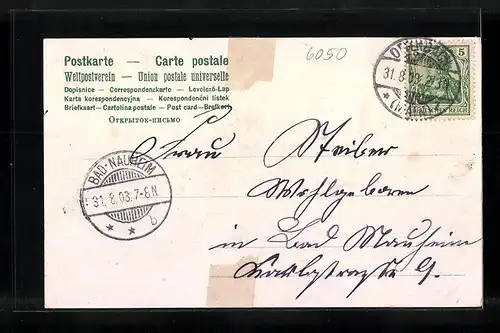 6050
5
Postkarte — Carte postale
Weltpostverein — Union postale universelle
Dopisnice — Correspondenzkarte — Levelező-Lap
Karta korespondencyjna — Korespondenční lístek
Briefkaart — Cartolina postale — Post card — Brefkort
Открытое-письмо
REICH
31.8.03
BAD-NAUHEIM
31.8.03.7-8.N.
* * b
Frau Steiber
Wohlgeboren
in Bad Nauheim